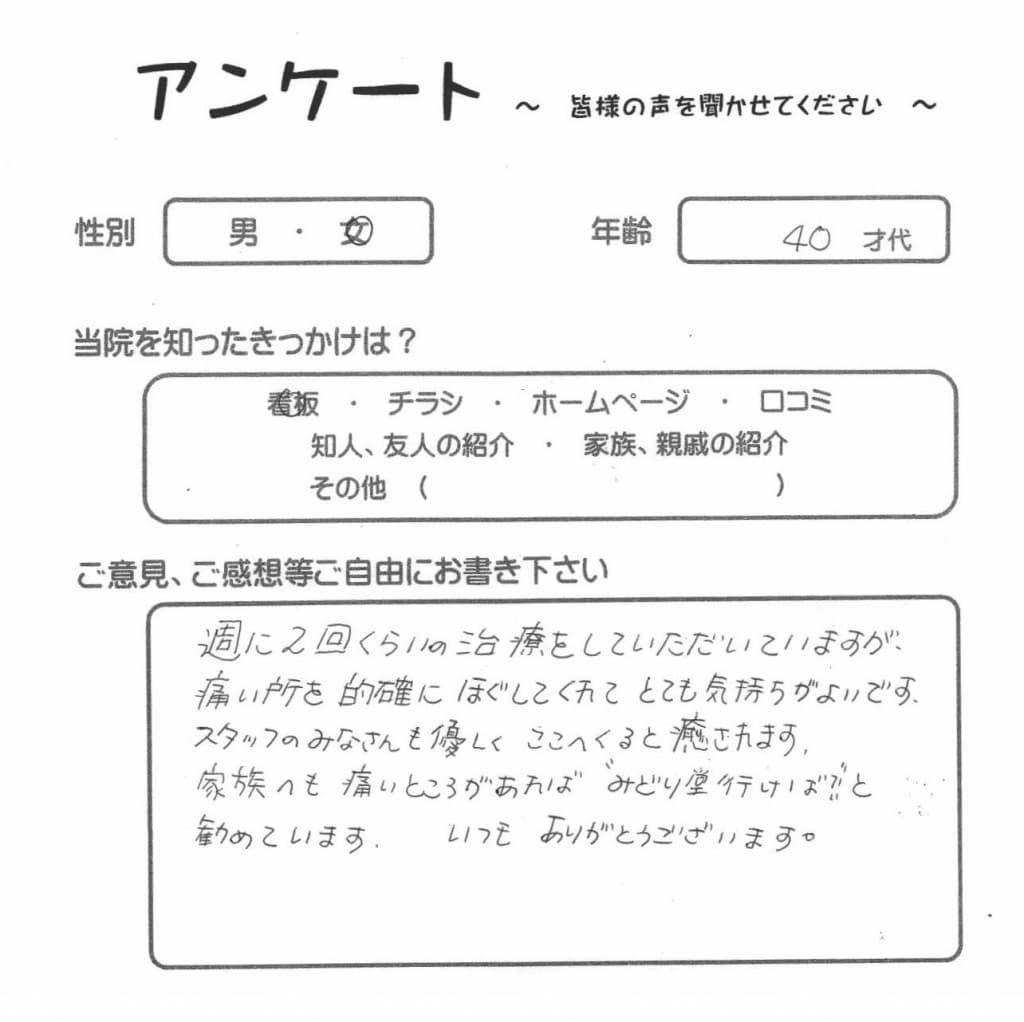 アンケート ～ 皆様の声を聞かせてください ～
性別 男 ・ 女 年齢 40 才代
当院を知ったきっかけは？
看板 ・ チラシ ・ ホームページ ・ 口コミ
知人、友人の紹介 ・ 家族、親戚の紹介
その他 （ ）
ご意見、ご感想等ご自由にお書き下さい
週に2回くらいの治療をしていただいていますが、
痛い所を的確に ほぐしてくれて とても気持ちがよいです。
スタッフのみなさんも優しく ここへくると癒されます。
家族へも 痛いところがあれば “みどり堂行けば?”と
勧めています. いつも ありがとうございます。